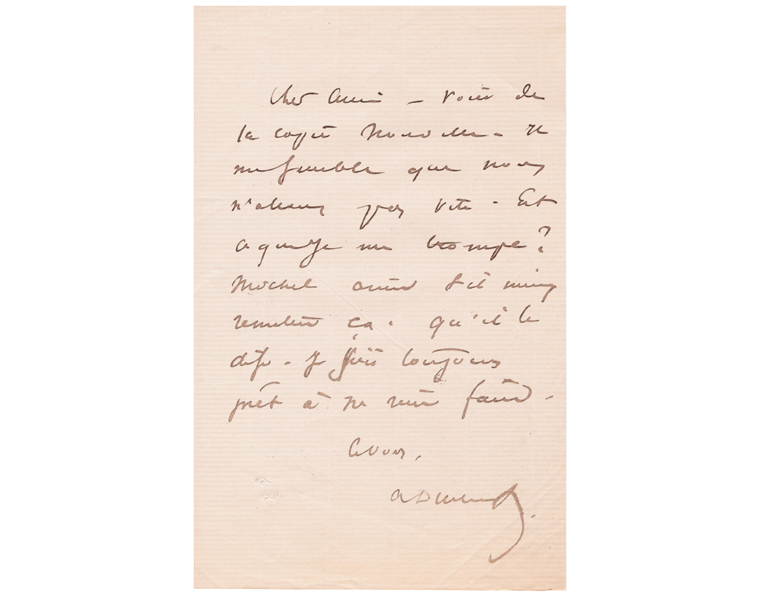 Cher ami — Voici de
la copie nouvelle — Il
me semble que nous
n'allons pas vite. Est
ce que je me trompe ?
Michel aime
remettre ça. qu'il le
dise — Je suis toujours
prêt à ne rien faire.
à vous,